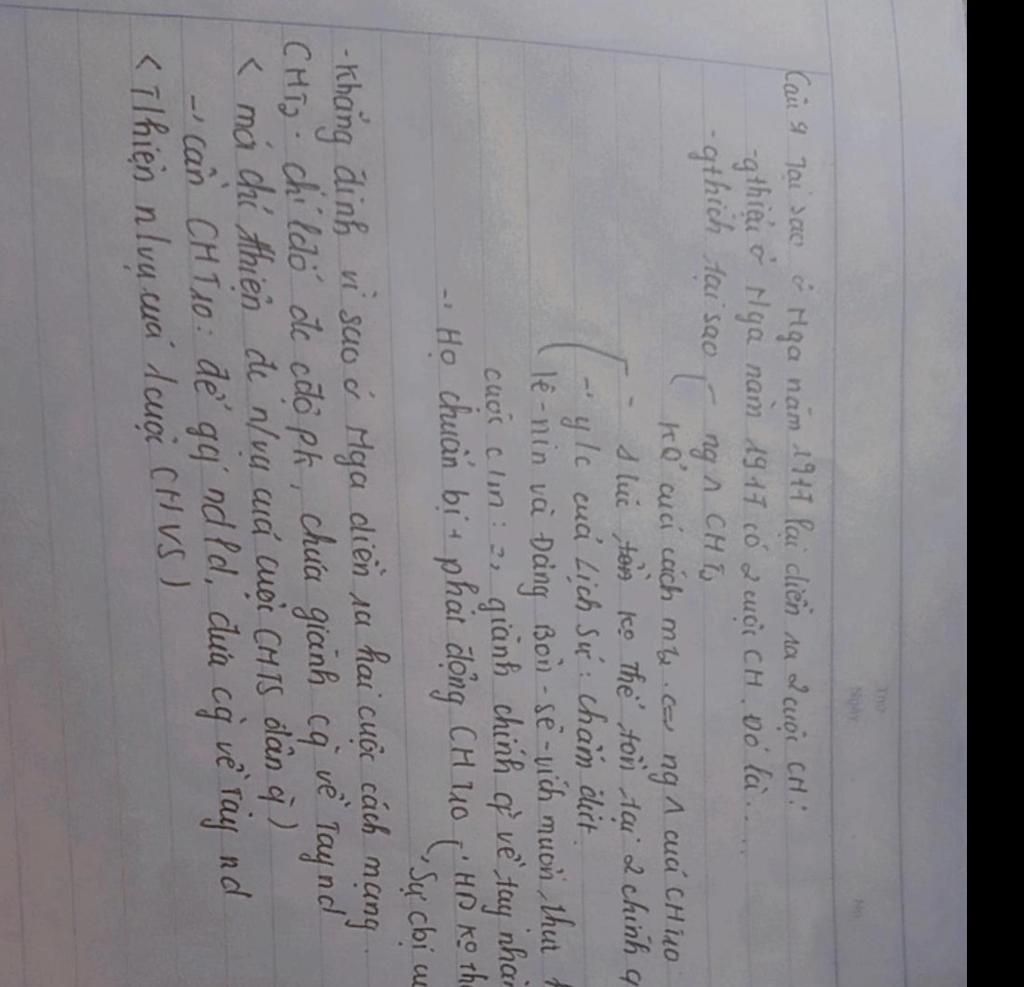 Câu 9 Tại sao ở Nga năm 1917 lại diễn ra 2 cuộc CH:
-gthiệu ở Nga năm 1917 có 2 cuộc CH. Đó là.....
-gthích tại sao ng^ CHT2
KQ của cách m T2 <=> ng^ của CHT10
- 1 lúc ko thể tồn tại 2 chính q
-, y/c của Lịch Sử: chấm dứt.
lê-nin và Đảng Bôn-sê-vích muốn
cuộc c/m: giành chính q về tay nhà
-, Họ chuẩn bị + phát động CHT10 (, HĐ ko th
, Sự cbị
-Khẳng định vì sao ở Nga diễn ra hai cuộc cách mạng.
CHT2. chỉ lđổ đc cđộ pk, chưa giành cq về Tay nd
< mớ chỉ thiện đc n/vụ cuả cuộc CMTS dân q)
-, cần CHT10: để gq nd lđ, đưa cq về Tay nd
< T/hiện n/vụ cuả 1 cuộc CHVS)